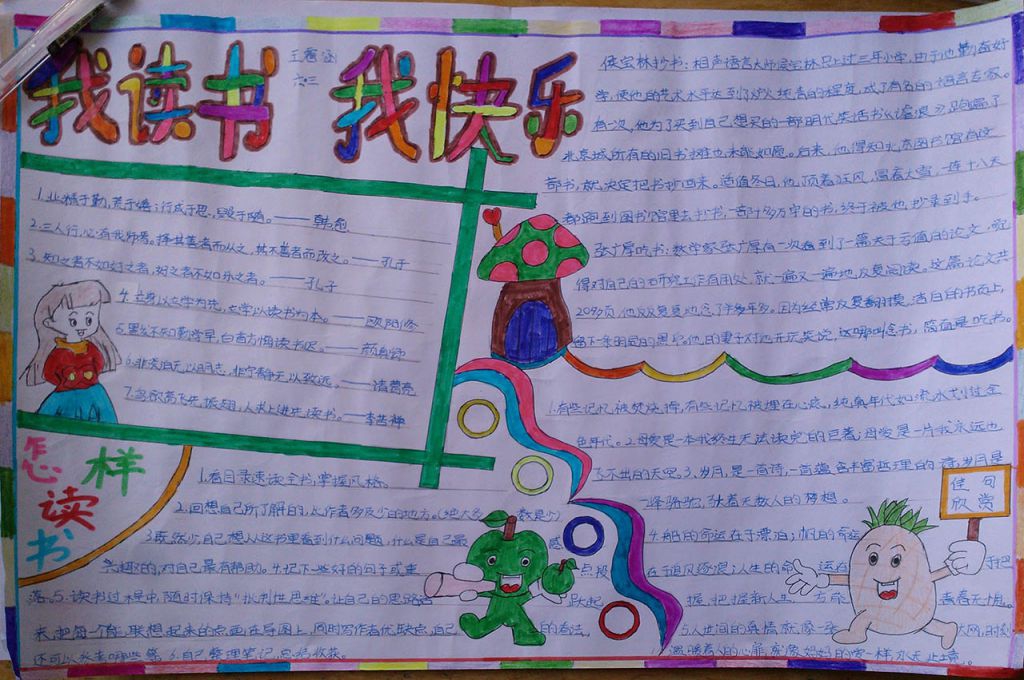 我读书 我快乐
王睿涵
六三
1.业精于勤,荒于嬉;行成于思,毁于随。——韩愈
2.三人行,必有我师焉。择其善者而从之,其不善者而改之。——孔子
3.知之者不如好之者,好之者不如乐之者。——孔子
4.立身以立学为先,立学以读书为本。——欧阳修
5.黑发不知勤学早,白首方悔读书迟。——颜真卿
6.非淡泊无以明志,非宁静无以致远。——诸葛亮
7.鸟欲高飞先振翅,人求上进先读书。——李苦禅
侯宝林抄书:相声语言大师侯宝林只上过三年小学,由于他勤奋好
学,使他的艺术水平达到了炉火纯青的程度,成了有名的语言专家。
有一次,他为了买到自己想买的一部明代笑话书《谑浪》,跑遍了
北京城所有的旧书摊也未能如愿。后来,他得知北京图书馆有这
部书,就决定把书抄回来。适值冬日,他顶着狂风,冒着大雪,一连十八天
都跑到图书馆里去抄书,一部十多万字的书,终于被他抄录到手。
张广厚吃书:数学家张广厚有一次看到了一篇关于亏值的论文,觉
得对自己的研究工作有用处,就一遍又一遍地反复阅读。这篇论文共
20多页,他反反复复地念了半年多。因为经常反复翻摸,洁白的书页上,
留下一条明显的黑印。他的妻子对他开玩笑说,这哪叫念书,简直是吃书。
怎样
读
书
1.看目录速读全书,掌握风格。
2.回想自己所了解的,比作者多及少的地方。(绝大多 数是少)
3.既然少,自己想从这书里看到什么问题,什么是自己最 感
兴趣的,对自己最有帮助。4.记下一些好的句子或重 点段
落。5.读书过程中,随时保持“批判性思维”。让自己的思路 跃起
来,把每一个能联想起来的点画在导图上,同时写作者优缺点,自己 的看法,
还可以 6.自己整理笔记,总结收获。
1.有些记忆被焚烧掉,有些记忆被埋在心底,纯真年代如流水划过金
色年代。2.母爱是一本我终生无法读完的巨著;母爱是一片我永远也
飞不出的天吧。3.岁月,是一首诗,一首蕴含丰富哲理的诗,岁月是
一峰骆驼,驮着无数人的梦想。
佳句
欣赏
4.船的命运在于漂泊;帆的命运
在于追风逐浪;人生的命 运在 于把
握,把握新人生 方能 青春无悔。
5.人世间的真情就像一张 大网,时刻
温暖着人的心扉,家像妈妈的爱一样永无止境。